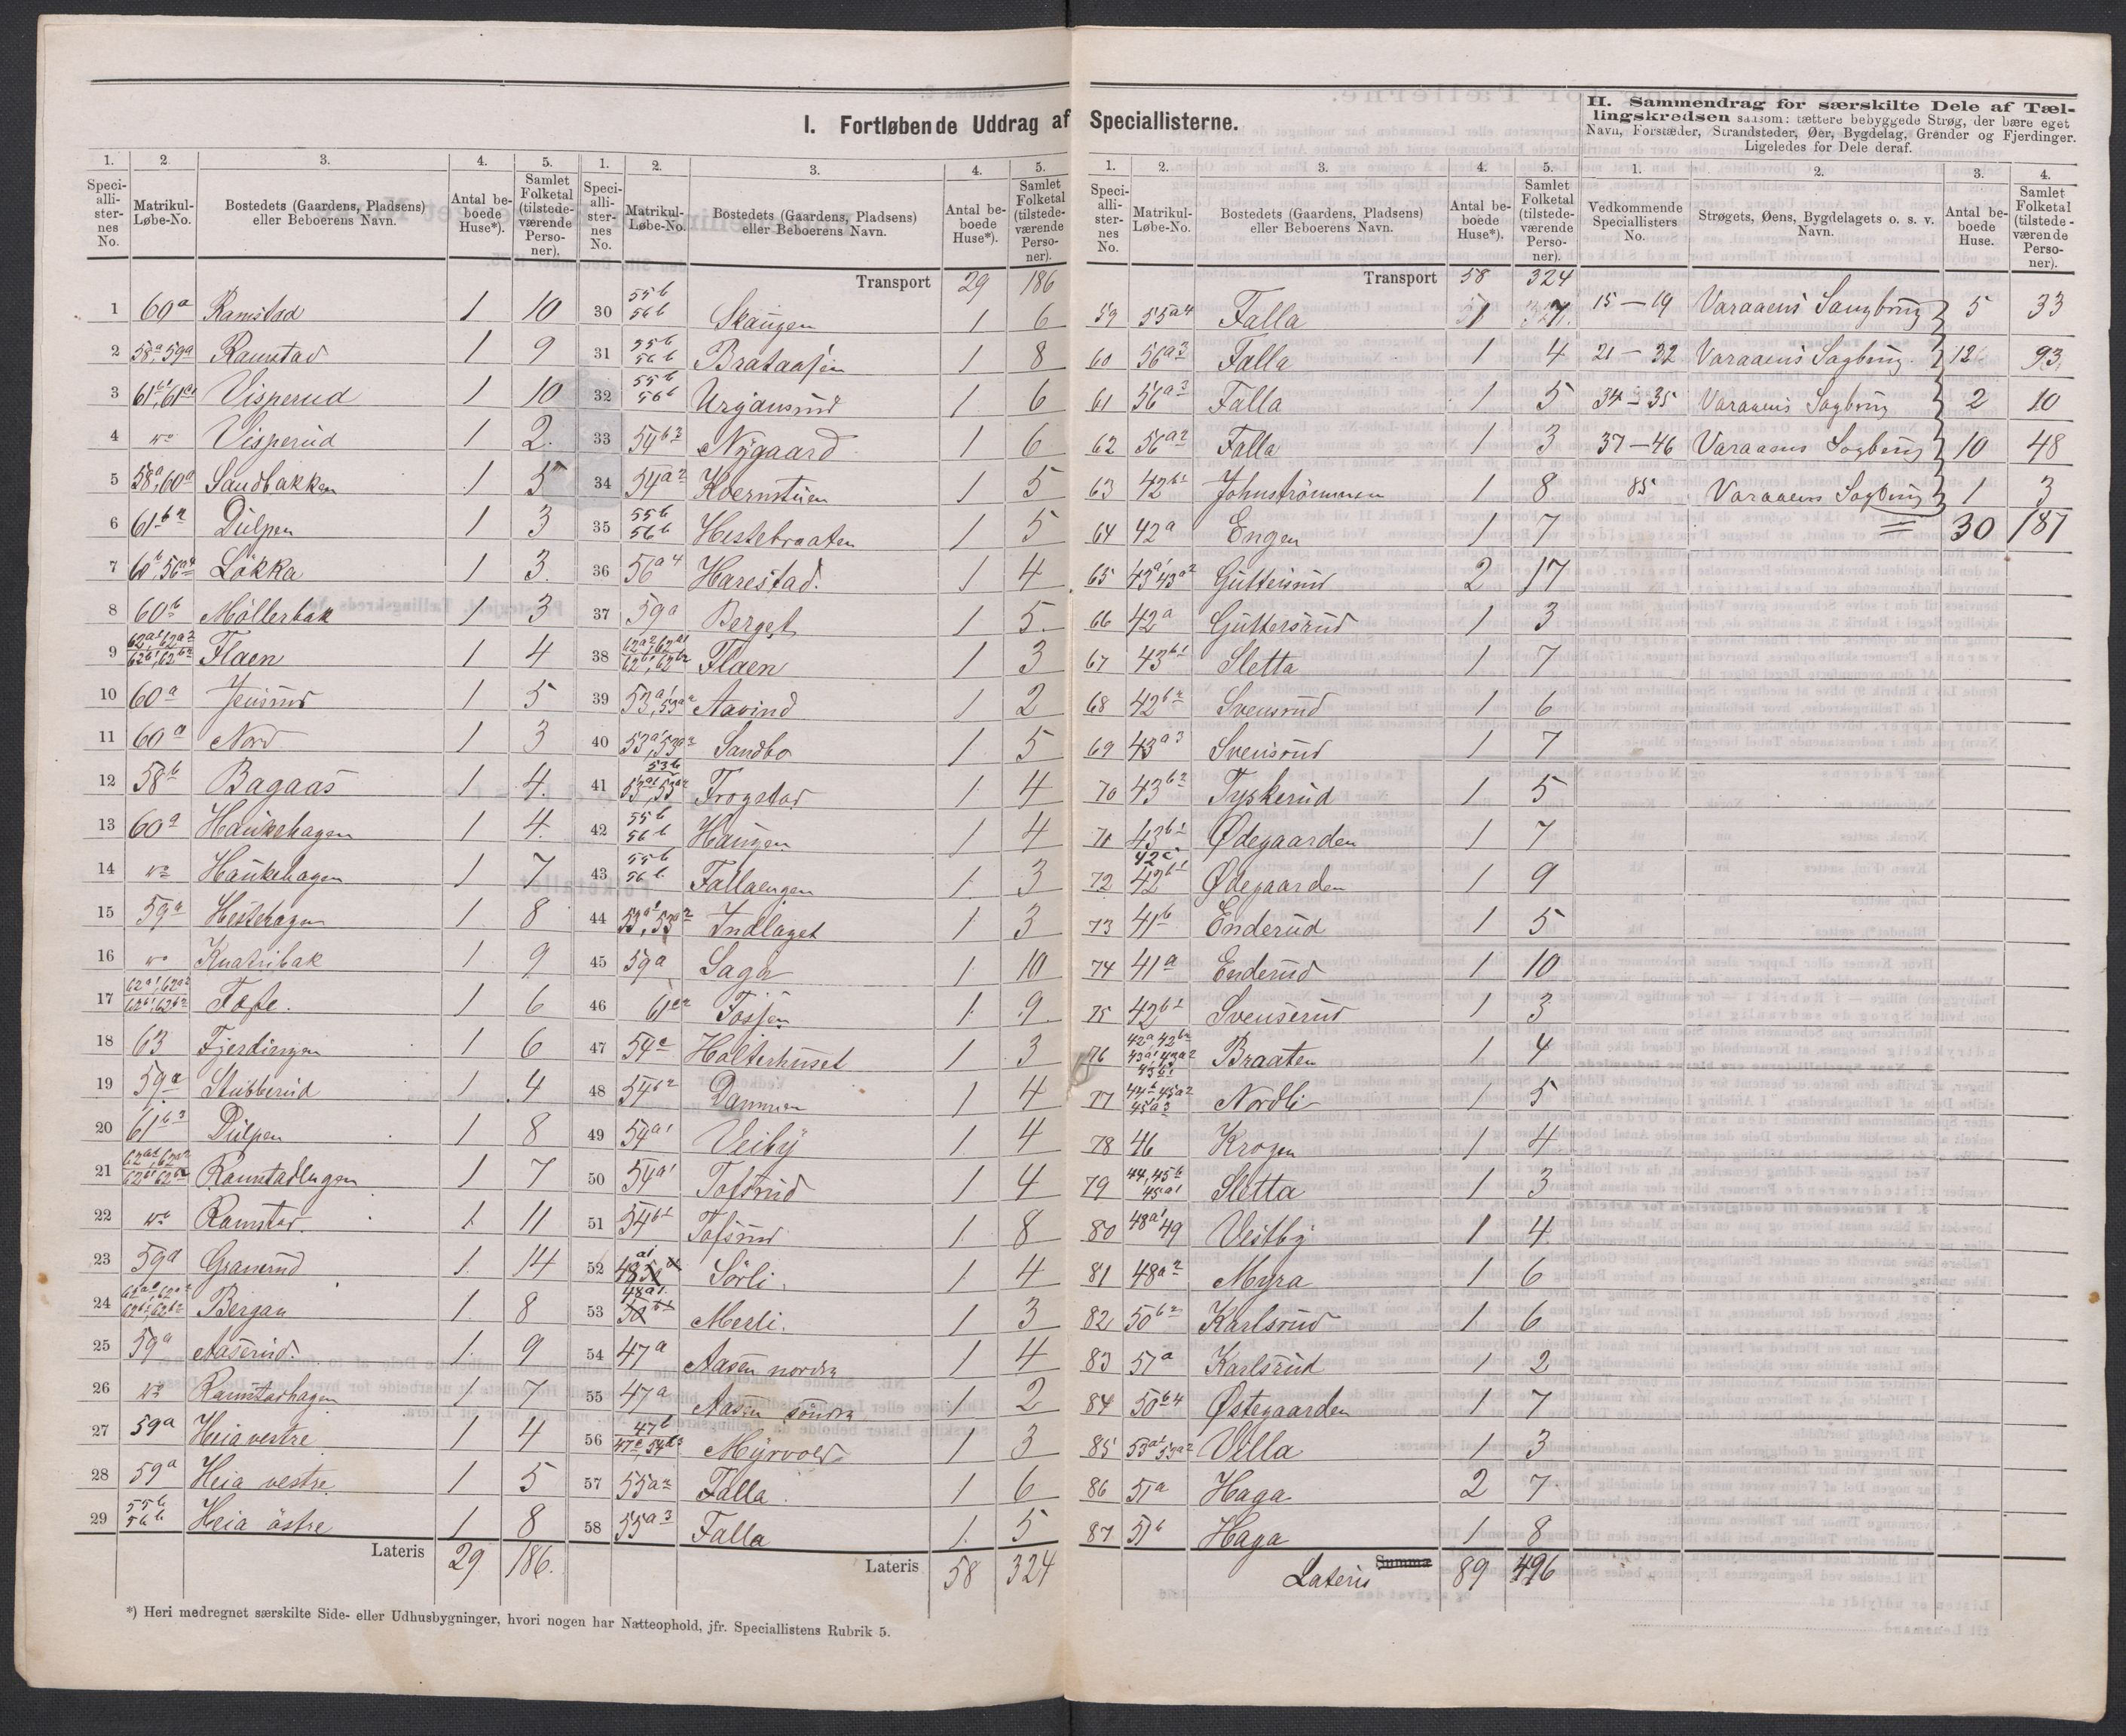 I. Fortløbende Uddrag af Speciallisterne.
1. 2. 3. 4. 5.
Speciallisternes No. Matrikul-Løbe-No. Bostedets (Gaardens, Pladsens) eller Beboerens Navn. Antal beboede Huse*). Samlet Folketal (tilstedeværende Personer).
1 60a Ramstad 1 10
2 58a, 59a Ramstad 1 9
3 61b1, 61a1 Visperud 1 10
4 do Visperud 1 2
5 58a, 60a Sandbakken 1 5
6 61b2 Dülpen 1 3
7 60b, 56a4 Løkka 1 3
8 60b Möllerbak 1 3
9 62a1, 62a2 62b1, 62b2 Flaen 1 4
10 60a Jensrud 1 5
11 60a Nord 1 3
12 58b Bagaas 1 4
13 60a Haukehagen 1 4
14 do Haukehagen 1 7
15 59a Hestehagen 1 8
16 do Knatribak 1 9
17 62a1, 62a2 62b1, 62b2 Tofte 1 6
18 63 Fjerdingen 1 6
19 59a Stubberud 1 4
20 61b3 Dülpen 1 8
21 62a1, 62a2 62b1, 62b2 Ramstadengen 1 7
22 do Ramstad 1 11
23 59a Granerud 1 14
24 62a1, 62a2 62b1, 62b2 Bergan 1 8
25 59a Aaserud 1 9
26 do Ramstadhagen 1 7
27 59a Heia vestre 1 4
28 59a Heia vestre 1 5
29 55b 56b Heia östre 1 8
Lateris 29 186
*) Heri medregnet særskilte Side- eller Udhusbygninger, hvori nogen har Natteophold, jfr. Speciallistens Rubrik 5.
1. 2. 3. 4. 5.
Speciallisternes No. Matrikul-Løbe-No. Bostedets (Gaardens, Pladsens) eller Beboerens Navn. Antal beboede Huse*). Samlet Folketal (tilstedeværende Personer).
Transport 29 186
30 55b 56b Skaugen 1 6
31 55b 56b Brataasen 1 8
32 55b 56b Urgansrud 1 6
33 54b3 Nygaard 1 6
34 54a2 Kvernstuen 1 5
35 55b 56b Hestebraaten 1 5
36 56a4 Harestad 1 4
37 59a Berget 1 5
38 62a2, 62a1 62b1, 62b2 Flaen 1 3
39 53a1, 53a2 Aavind 1 2
40 53a1, 53a2 Sandbo 1 5
41 53b 53a1, 53a2 Frogstad 1 4
42 55b 56b Haugen 1 4
43 55b 56b Fallaengen 1 3
44 53a1, 53a2 Indlaget 1 3
45 59a Saga 1 10
46 61a2 Fossen 1 9
47 54c Holterhuset 1 3
48 54b2 Dammen 1 4
49 54a1 Veiby 1 4
50 54a1 Tofsrud 1 4
51 54b1 Tofsrud 1 8
52 48a1 Sörli 1 4
53 48a1 Merli 1 3
54 47a Aasen nordre 1 4
55 47a Aasen söndre 1 2
56 47b 47c, Myrvold 1 3
57 55a2 Falla 1 6
58 55a3 Falla 1 5
Lateris 58 324
1. 2. 3. 4. 5.
Speciallisternes No. Matrikul-Løbe-No. Bostedets (Gaardens, Pladsens) eller Beboerens Navn. Antal beboede Huse*). Samlet Folketal (tilstedeværende Personer).
Transport 58 324
59 55a4 Falla 1 7
60 56a3 Falla 1 4
61 56a3 Falla 1 5
62 56a2 Falla 1 3
63 42b1 Johnströmmen 1 8
64 42a Engen 1 7
65 43a1 43a2 Guttersrud 2 17
66 42a Guttersrud 1 3
67 43b1 Sletta 1 7
68 42b2 Svensrud 1 6
69 43a3 Svensrud 1 7
70 43b2 Tyskerud 1 5
71 43b1 Ødegaarden 1 7
72 42c 42b1 Ødegaarden 1 9
73 41b Enderud 1 5
74 41a Enderud 1 10
75 42b1 Svenserud 1 3
76 42a, 42b2 43a1 43a2 43b1 Braaten 1 4
77 44b, 45a2 45a3 Nordli 1 5
78 46 Krogen 1 4
79 44, 45b 45a1 Sletta 1 3
80 48a1 49 Vestby 1 4
81 48a2 Myra 1 6
82 50b2 Karlsrud 1 6
83 51a Karlsrud 1 2
84 50b4 Østegaarden 1 7
85 53a1 53a2 Villa 1 3
86 51a Haga 2 7
87 51b Haga 1 8
Summa
Lateris 89 496
II. Sammendrag for særskilte Dele af Tællingskredsen saasom: tættere bebyggede Strøg, der bære eget Navn, Forstæder, Strandsteder, Øer, Bygdelag, Grender og Fjerdinger. Ligeledes for Dele deraf.
1. 2. 3. 4.
Vedkommende Speciallisters No. Strøgets, Øens, Bygdelagets o. s. v. Navn. Antal beboede Huse. Samlet Folketal (tilstedeværende Personer).
15 – 19 Varaaens Sangbrug 5 33
21 – 32 Varaaens Sagbrug 12 93
34 – 35 Varaaens Sagbrug 2 10
37 – 46 Varaaens Sagbrug 10 48
85 Varaaens Sagbrug 1 3
= 30 187